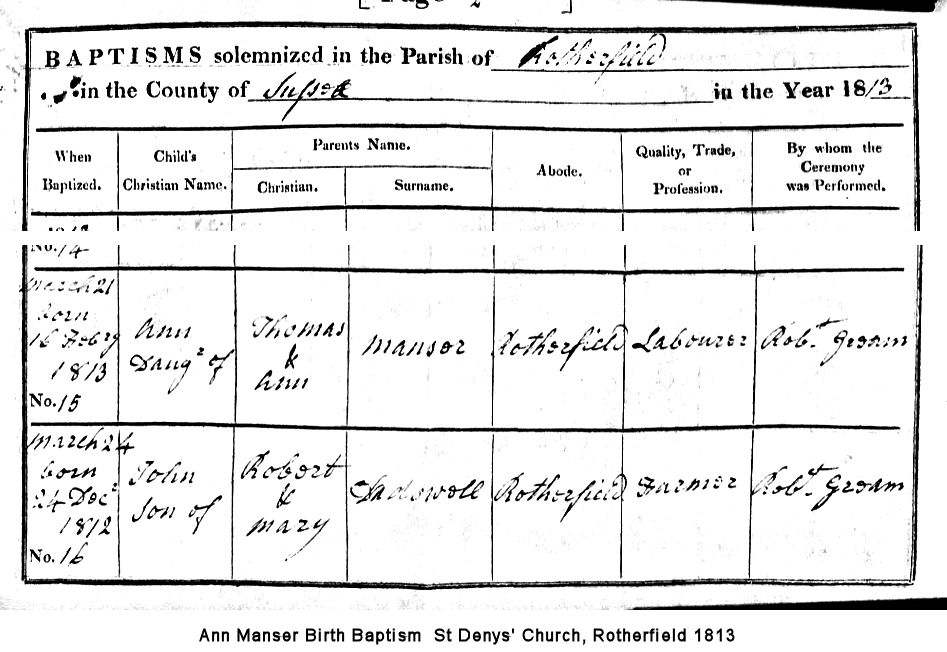 [ Page 2 ]
BAPTISMS solemnized in the Parish of Rotherfield
in the County of Sussex in the Year 1813
When Baptized.
Child's Christian Name.
Parents Name.
Christian.
Surname.
Abode.
Quality, Trade, or Profession.
By whom the Ceremony was Performed.
No. 14
March 21
born
16 Febry
1813
No. 15
Ann
Daugr of
Thomas
&
Ann
Manser
Rotherfield
Labourer
Robt. Gream
March 24
born
24 Decr
1812
No. 16
John
Son of
Robert
&
Mary
Rotherfield
Farmer
Robt. Gream
Ann Manser Birth Baptism St Denys' Church, Rotherfield 1813